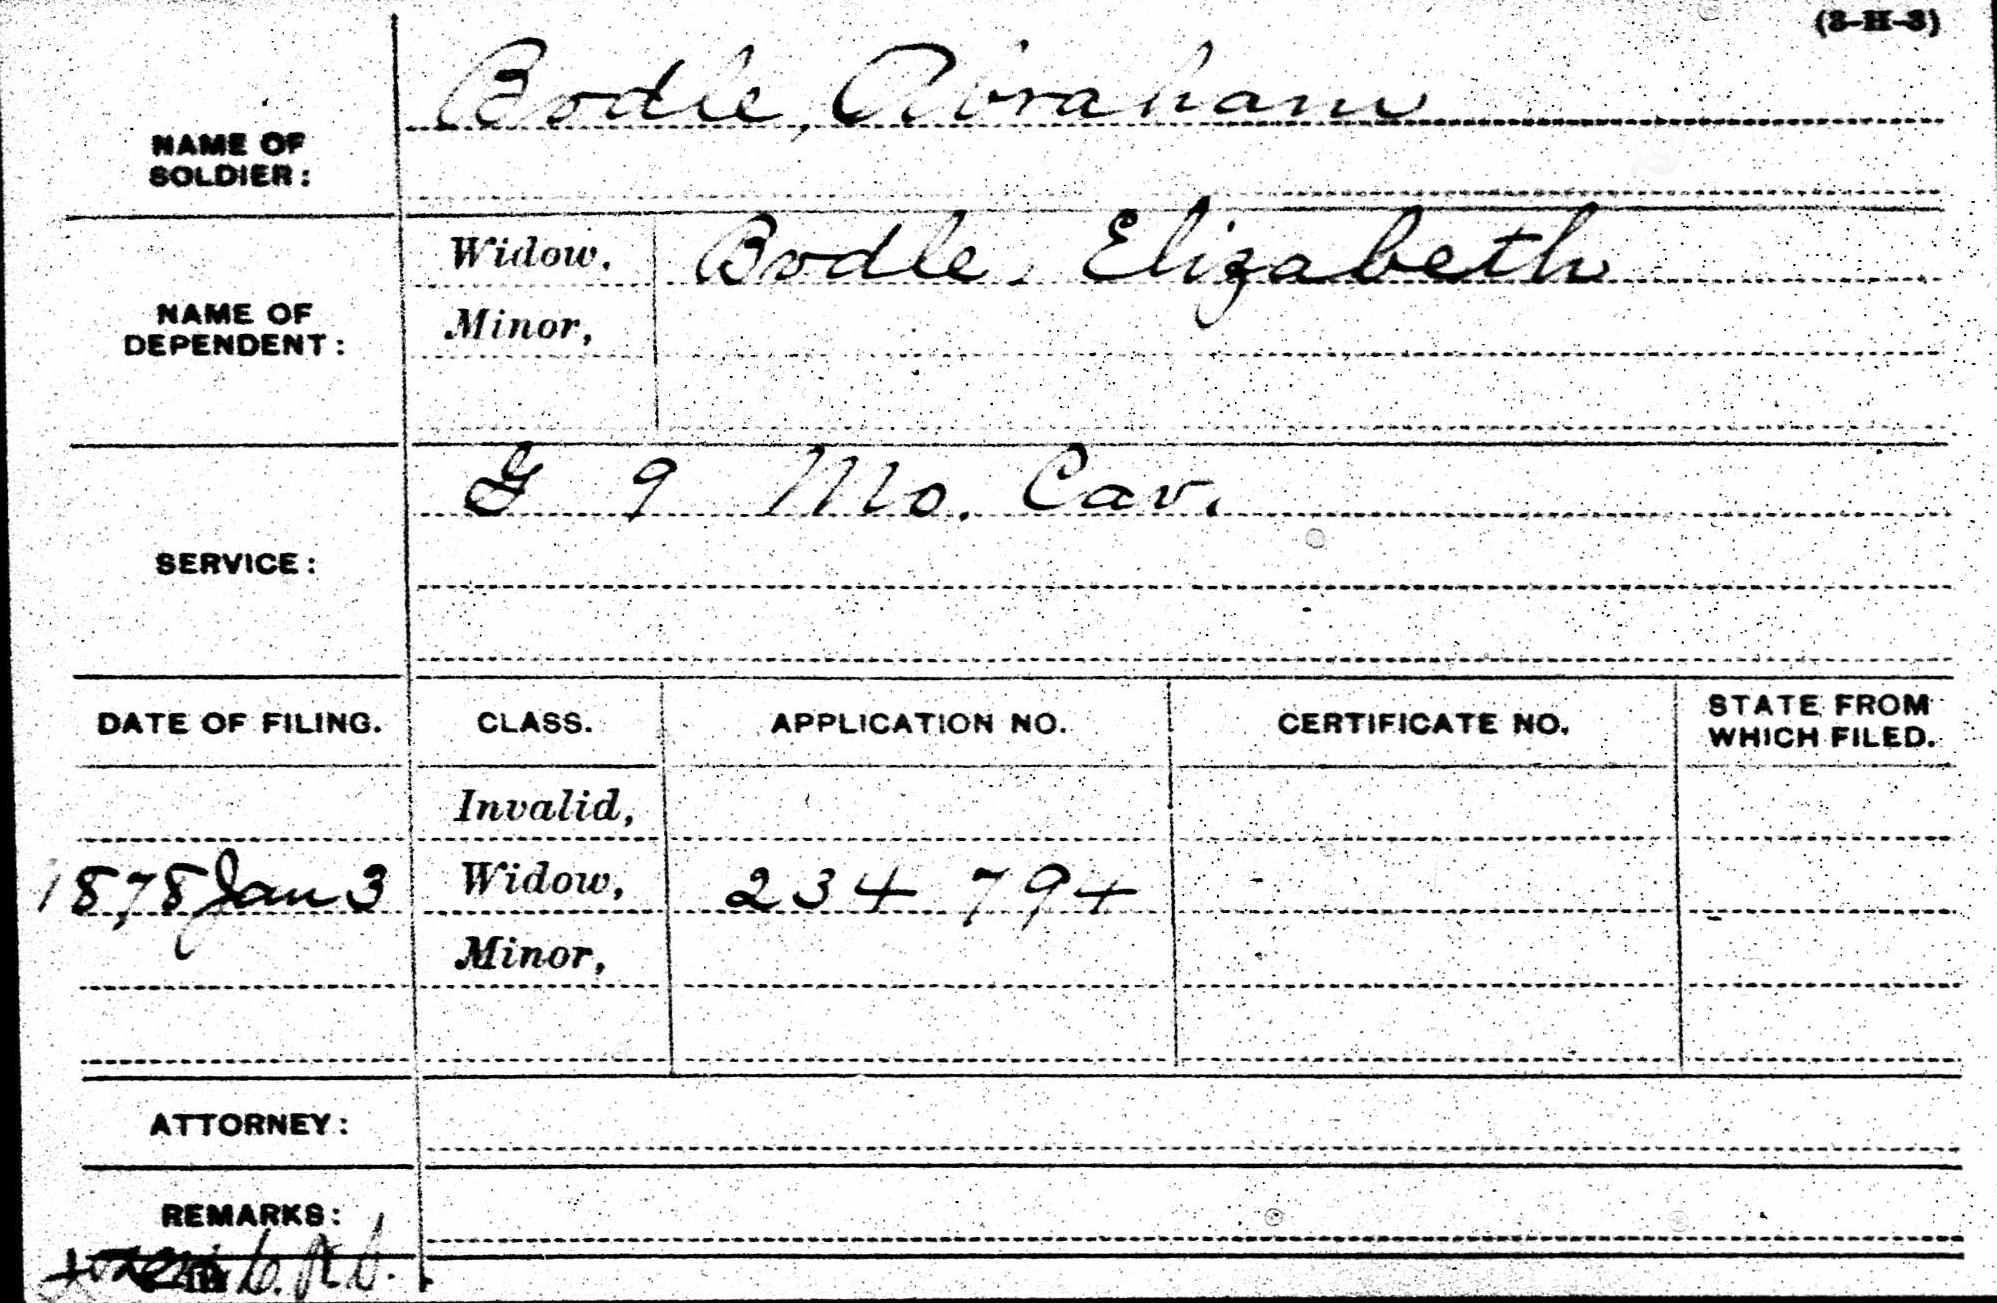 (3-H-3)
Bodle, Abraham
NAME OF
SOLDIER:
Widow, Bodle, Elizabeth
Minor,
NAME OF
DEPENDENT:
G 9 Mo. Cav.
SERVICE:
DATE OF FILING. CLASS. APPLICATION NO. CERTIFICATE NO. STATE FROM
WHICH FILED.
Invalid,
1878 Jan 3 Widow, 234 794
Minor,
ATTORNEY:
REMARKS: